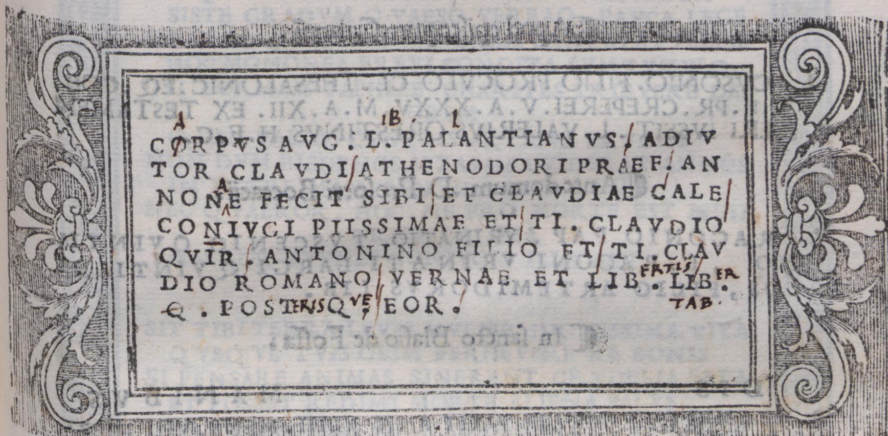 A IB. I
CORPVS AVG . L . PALANTIANVS / ADIV
TOR CLAVDI / ATHENODORI PRAEF / . AN
A
NONE FECIT SIBI / ET CLAVDIAE CALE /
CONIVGI PIISSIMAE ET / TI . CLAVDIO
QVIR . ANTONINO FILIO ET / TI . CLAV
DIO ROMANO / VERNAE ET LIBERTIS / . LIBER .
Q . POSTERISQVE / EOR . TAB.